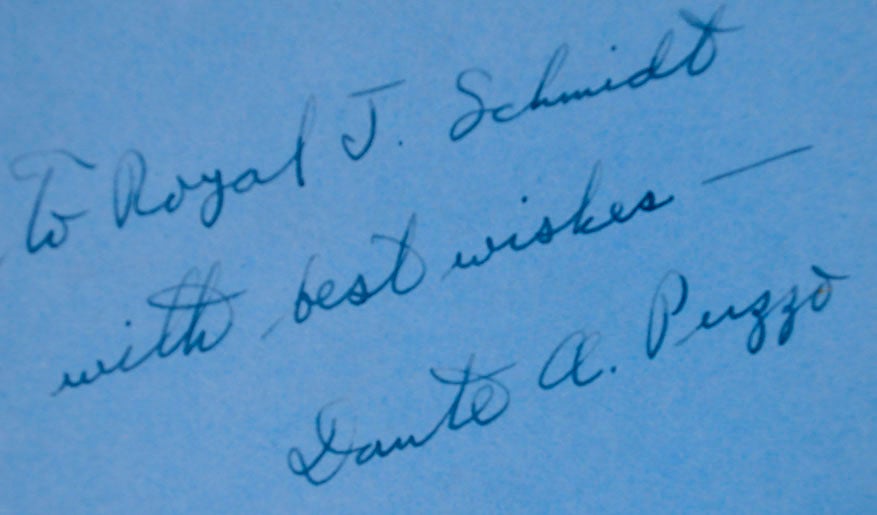 To Royal J. Schmidt
with best wishes —
Dante A. Puzzo